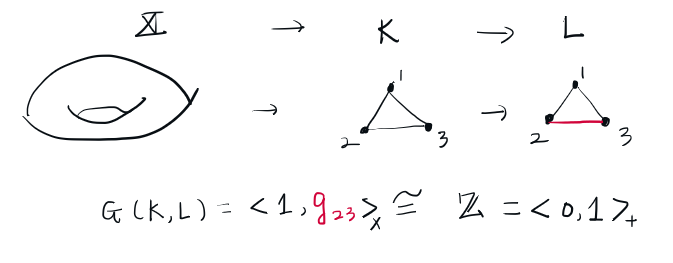 𝕏 → K → L
→ 1 2 3 → 1 2 3
G(K,L) = <1, g₂₃>ₓ ≅ ℤ = <0,1>₊